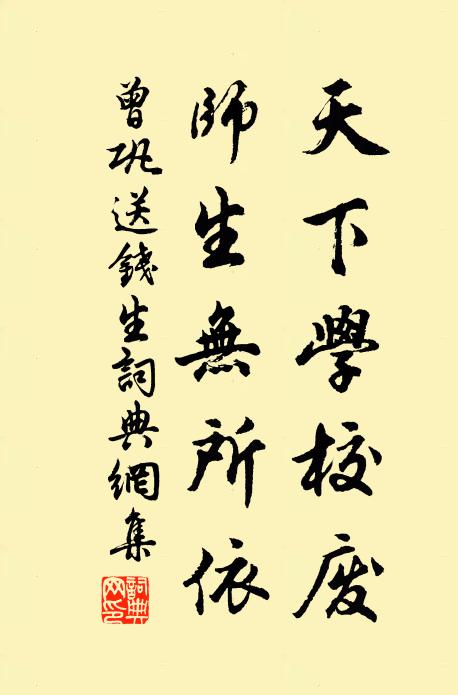 天下學校废
師生無所依
曾巩送錢生詞典網集
詞典网印